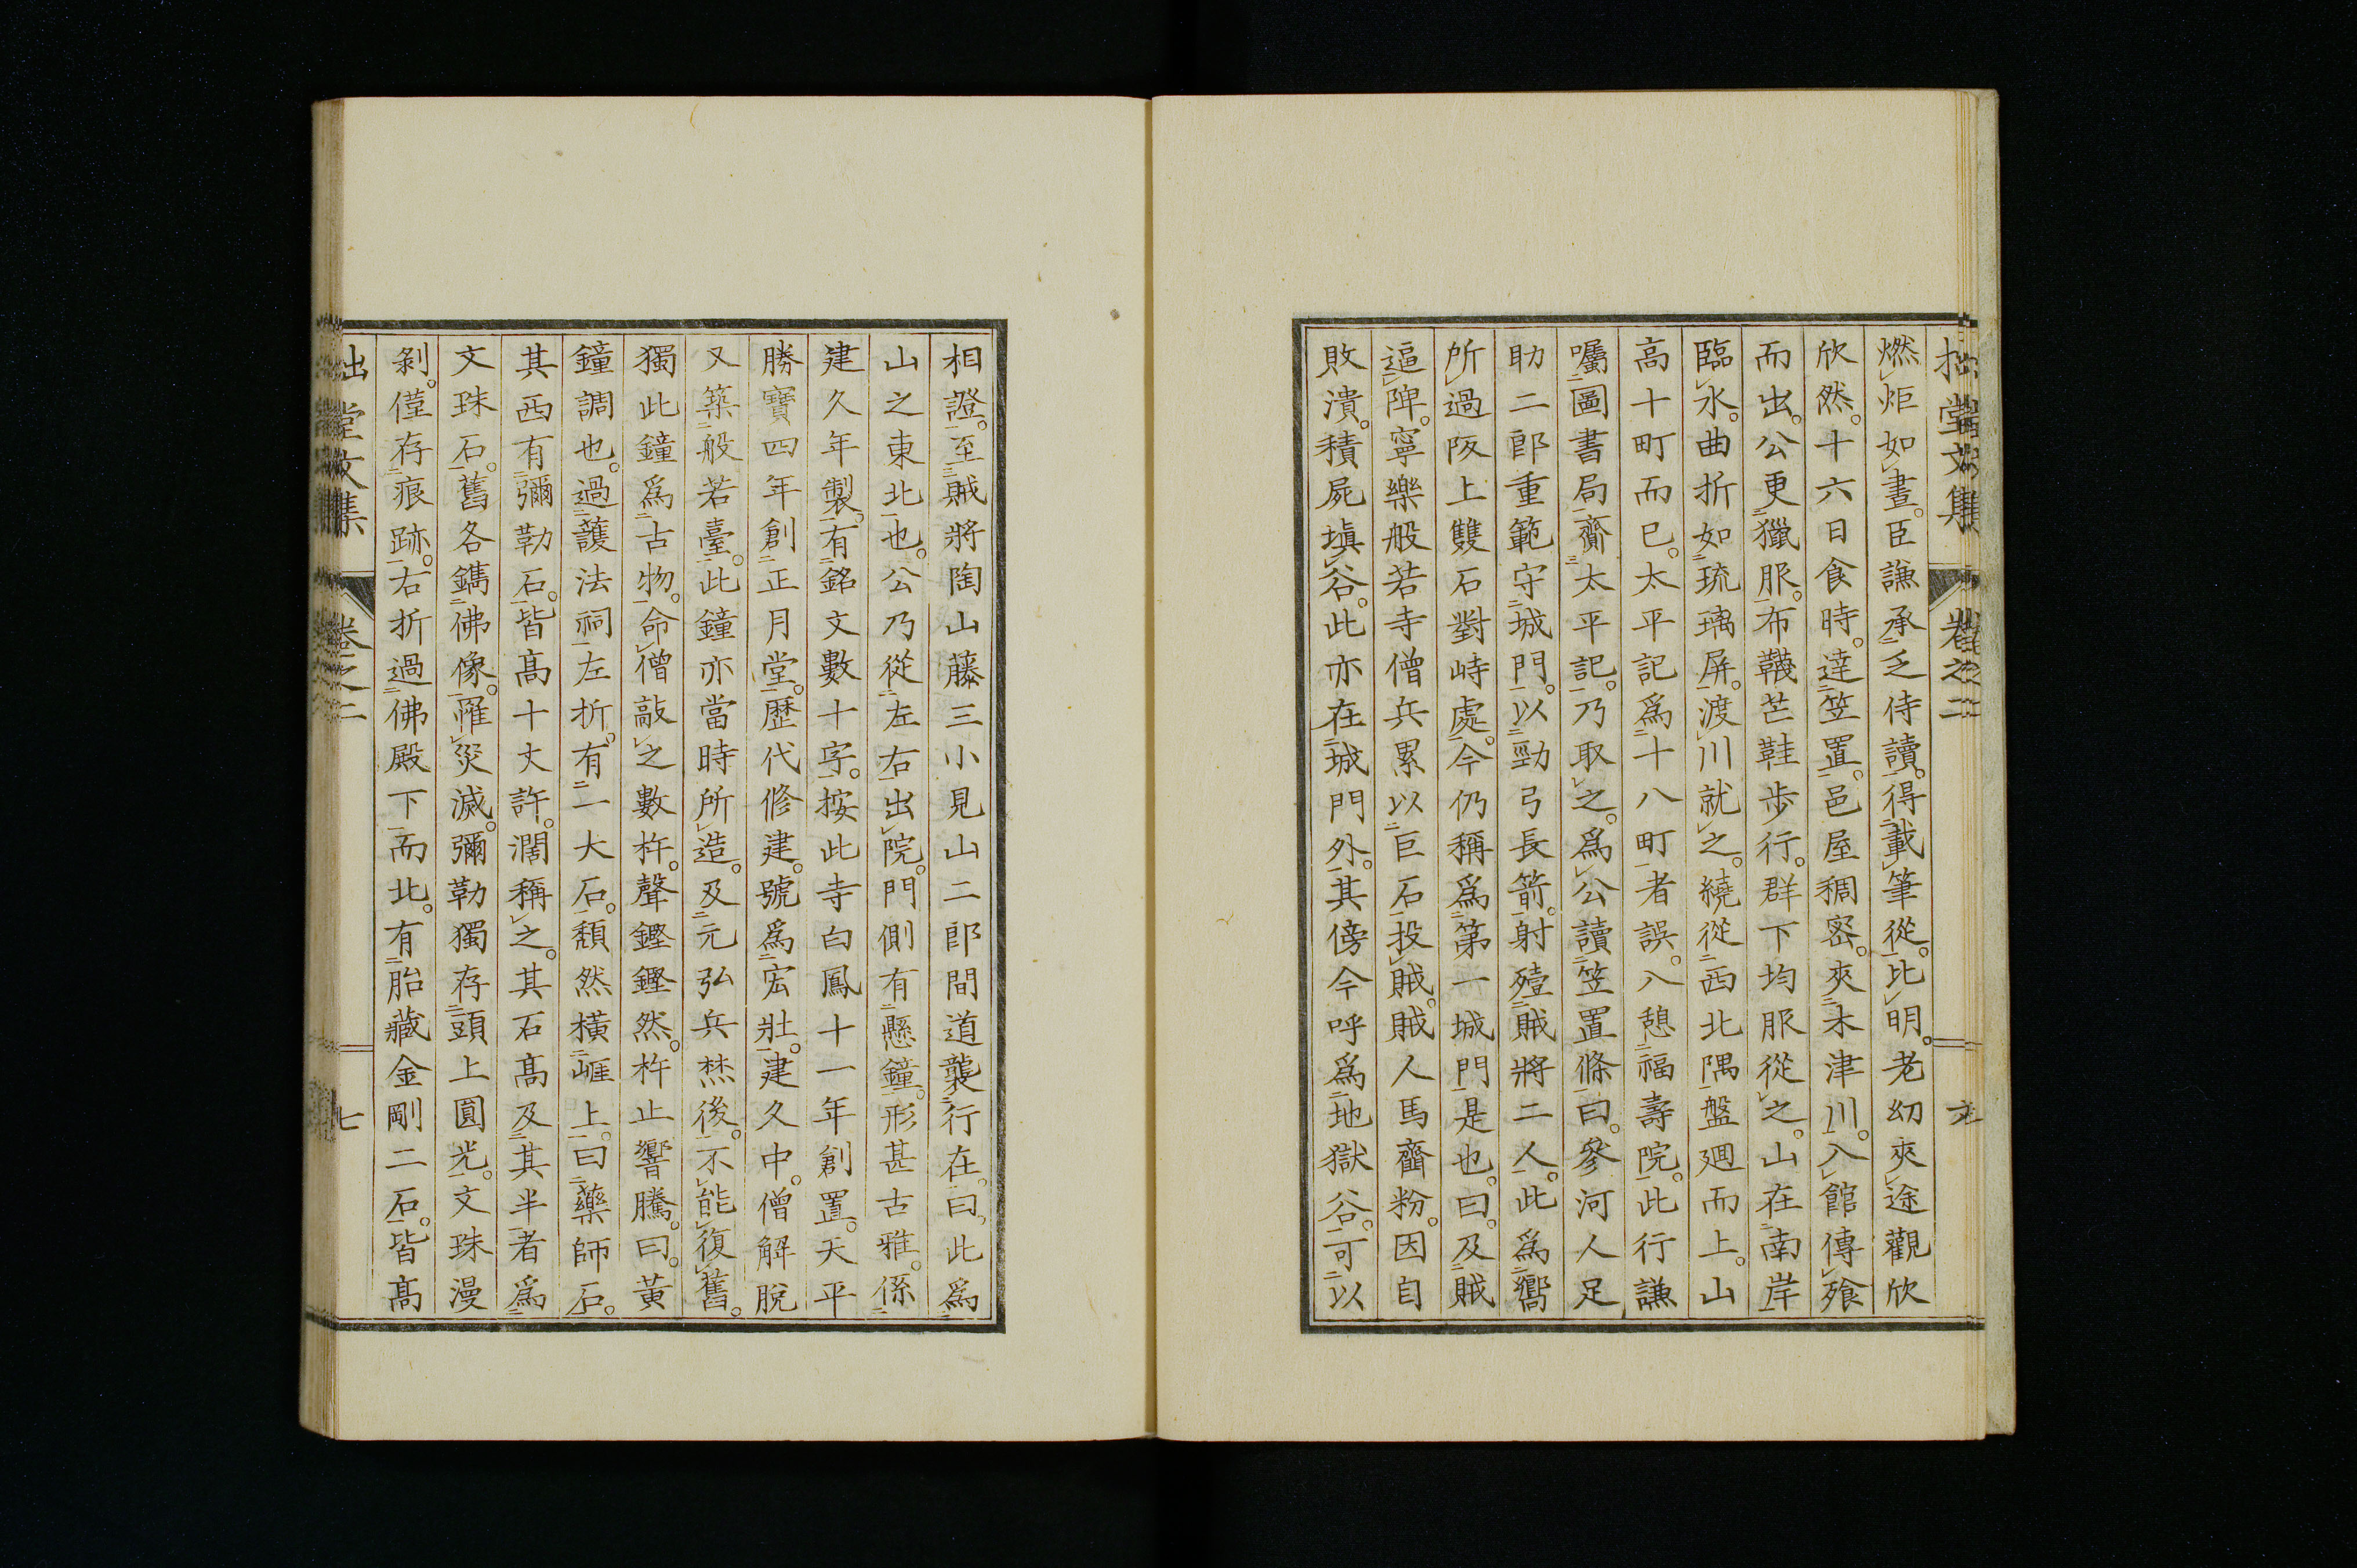 拙堂文集 卷之二
燃炬如晝。臣謙承乏侍讀。得載筆從。比明。老幼夾途觀欣
欣然。十六日食時。達笠置。邑屋稠密。夾木津川。入館傳飱
而出。公更獵服。布韈芒鞋步行。群下均服從之。山在南岸
臨水。曲折如琉璃屏。渡川就之。繞從西北隅盤廻而上。山
高十町而已。太平記爲十八町者誤。入憩福壽院。此行謙
囑圖書局齎太平記。乃取之。爲公讀笠置條曰。參河人足
助二郎重範守城門。以勁弓長箭。射殪賊將二人。此爲嚮
所過阪上雙石對峙處。今仍稱爲第一城門是也。曰。及賊
逼陴。寧樂般若寺僧兵累以巨石投賊。賊人馬齏粉。因自
敗潰。積屍塡谷。此亦在城門外。其傍今呼爲地獄谷。可以
相證。至賊將陶山藤三小見山二郎間道襲行在。曰。此爲
山之東北也。公乃從左右出院。門側有懸鐘。形甚古雅。係
建久年製。有銘文數十字。按此寺白鳳十一年創置。天平
勝寶四年創正月堂。歷代修建。號爲宏壯。建久中。僧解脫
又築般若臺。此鐘亦當時所造。及元弘兵燹後。不能復舊。
獨此鐘爲古物。命僧敲之數杵。聲鏗鏗然。杵止響騰。曰。黃
鐘調也。過護法祠左折。有一大石。頹然橫崕上。曰藥師石。
其西有彌勒石。皆高十丈許。濶稱之。其石高及其半者爲
文珠石。舊各鐫佛像。罹災滅。彌勒獨存頭上圓光。文珠漫
剝。僅存痕跡。右折過佛殿下而北。有胎藏金剛二石。皆高
堂文集 卷之二 七